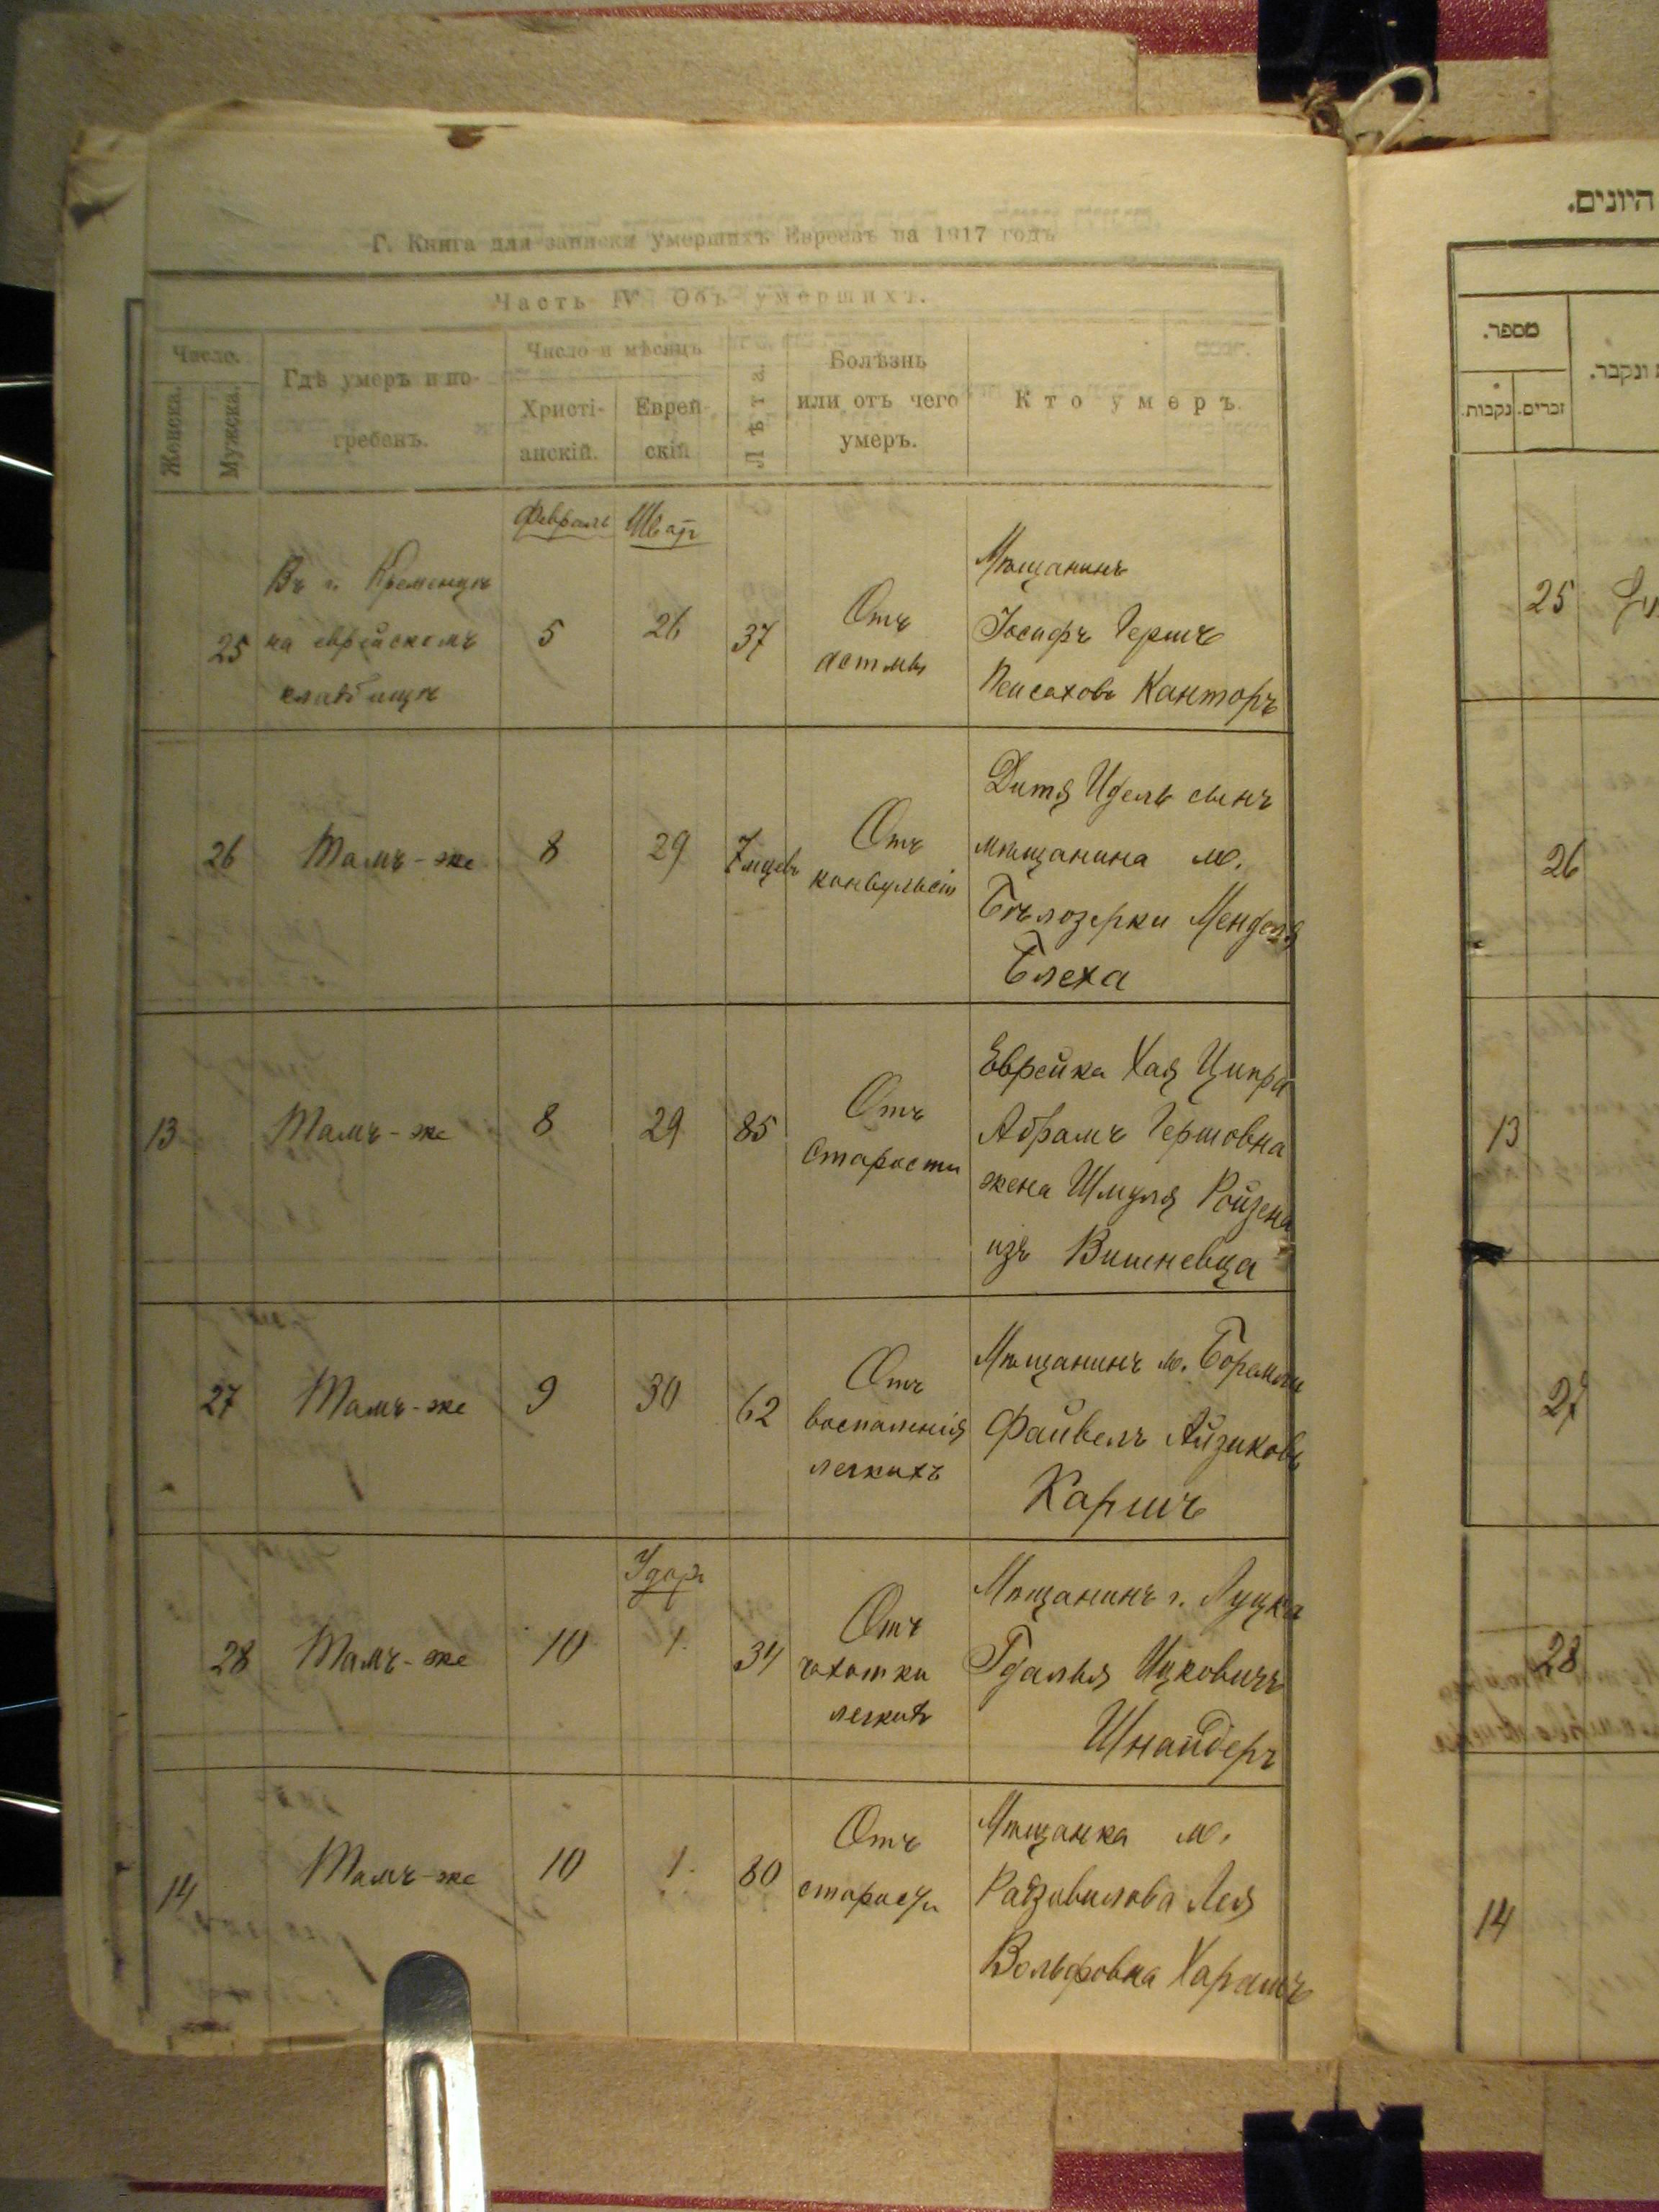 Г. Книга для записки умершихъ Евреевъ на 1917 годъ
Часть IV Объ умершихъ.
Число.
Женска.
Мужска.
Гдѣ умеръ и по-
гребенъ.
Число и мѣсяцъ
Христі-
анскій.
Еврей-
скій
Лѣта.
Болѣзнь
или отъ чего
умеръ.
Кто умеръ.
Февраль Шват
25
Въ г. Кременцѣ
на еврейскомъ
кладбищѣ
5
26
37
Отъ
астмы
Мѣщанинъ
Іосифъ Гершъ
Пейсаховъ Канторъ
26
Тамъ-же
8
29
7 мцевъ
Отъ
конвульсіи
Дитя Идель сынъ
мѣщанина м.
Бѣлозерки Менделя
Блеха
13
Тамъ-же
8
29
85
Отъ
старости
Еврейка Хая Ципра
Абрамъ Гершовна
жена Шмуля Ройзена
изъ Вишневца
27
Тамъ-же
9
30
62
Отъ
воспаленія
легкихъ
Мѣщанинъ м. Боремли
Файвель Айзиковъ
Каршъ
Адаръ
28
Тамъ-же
10
1.
34
Отъ
чахотки
легкихъ
Мѣщанинъ г. Луцка
Гдалья Ицковичъ
Шнайдеръ
14
Тамъ-же
10
1.
80
Отъ
старости
Мѣщанка м.
Радзивилова Лея
Вольфовна
היונים.
מספר.
נקבות.
זכרים.
ונקבר.
25
26
13
27
28
14